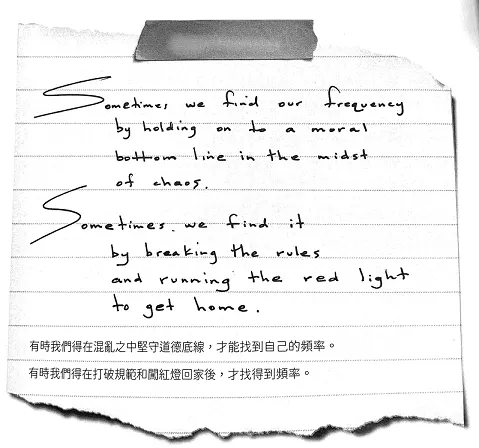 Sometimes we find our frequency
by holding on to a moral
bottom line in the midst
of chaos.
Sometimes. we find it
by breaking the rules
and running the red light
to get home.
有時我們得在混亂之中堅守道德底線，才能找到自己的頻率。
有時我們得在打破規範和闖紅燈回家後，才找得到頻率。